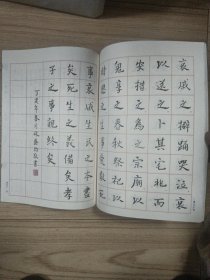 哀戚之擗踊哭泣哀
以送之卜其宅兆而
安措之為之宗廟以
鬼享之春秋祭祀以
時思之生事愛敬死
事哀戚生民之本盡
矣死生之義備矣孝
子之事親終矣
丁亥年